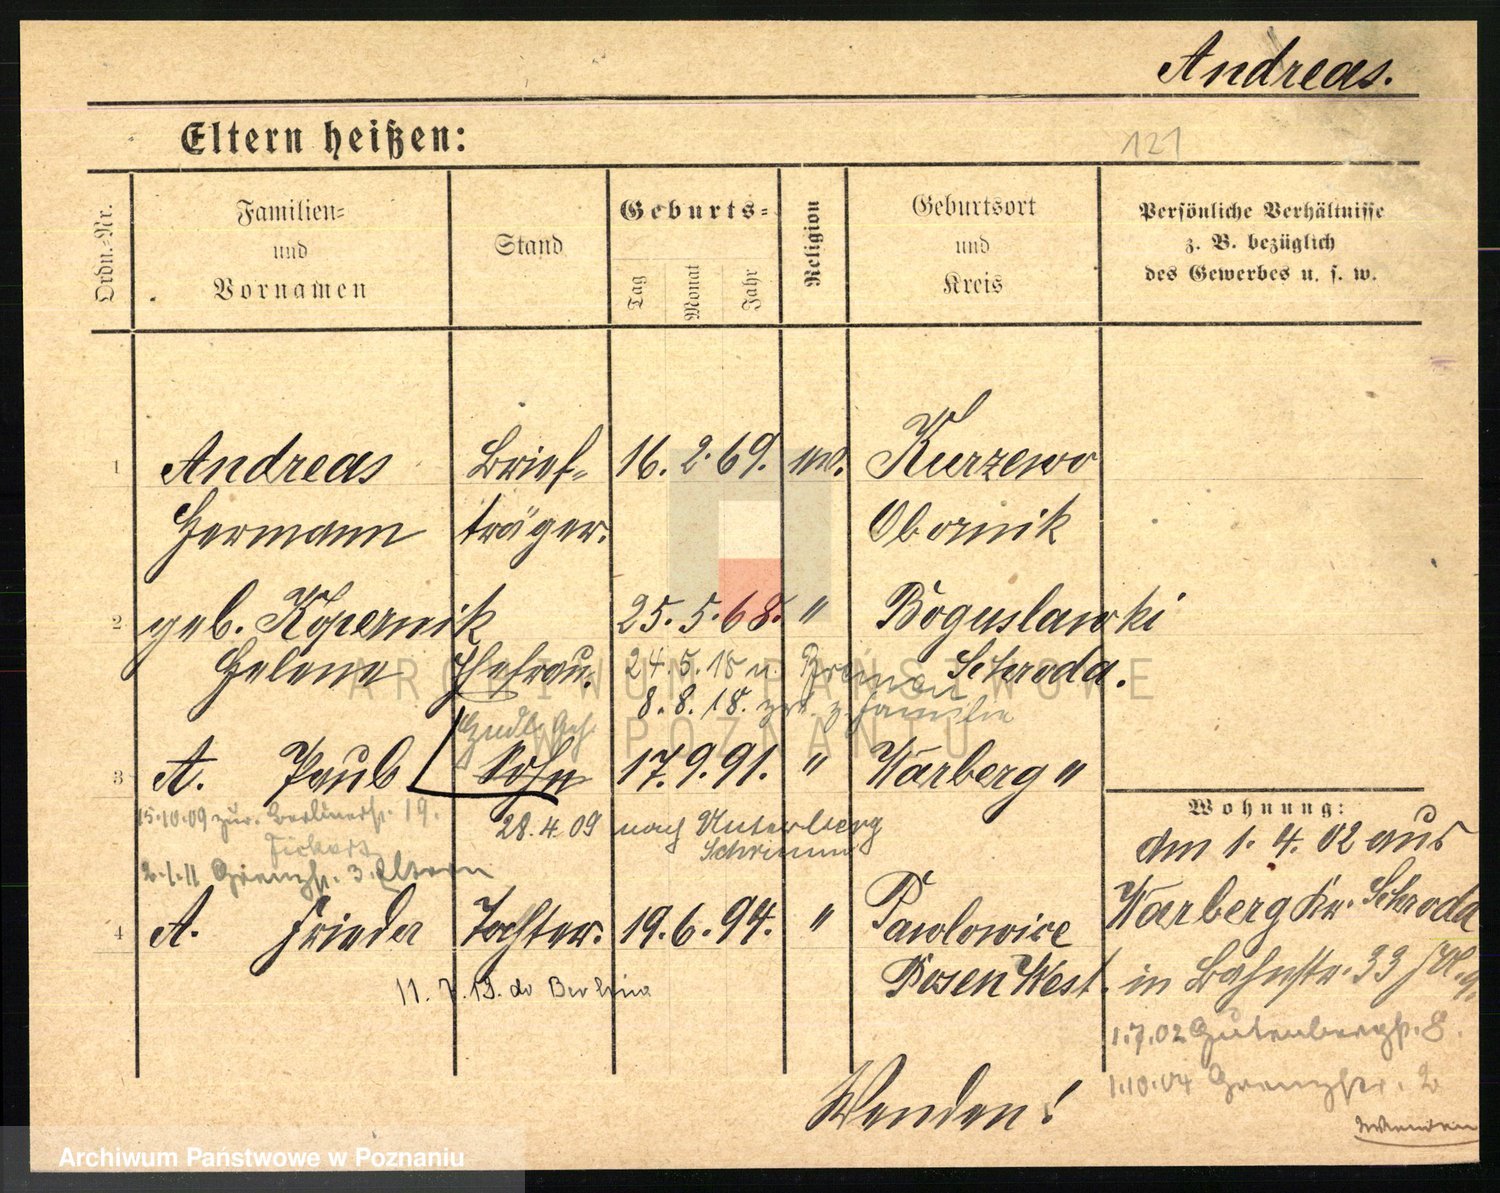 Andreas.
Eltern heißen:
121
Ordn.-Nr.
Familien-
und
Vornamen
Stand
Geburts-
Tag
Monat
Jahr
Religion
Geburtsort
und
Kreis
Persönliche Verhältnisse
z. B. bezüglich
des Gewerbes u. s. w.
1 Andreas Brief- 16. 2. 69. Kurzewo
Hermann träger. Obornik
2 geb. Kopernik 25. 5. 68. " Boguslawki
Helene Ehefrau. Schroda.
24.5.18 u. Bremen
8.8.18. zrk. z. Familie
3 A. Paul Sohn 17. 9. 91. " Warberg "
15.10.09 zur. Berlinerstr. 19.
28.4.09 nach Unterberg
Schrimm
2.1.11 Grenzstr. 3. Eltern
4 A. Frieda Tochter. 19. 6. 94. " Pawlowice
Posen West.
11. 7. 19. do Berlina
Wohnung:
Am 1. 4. 02 aus
Warberg Kr. Schroda
in Bahnstr. 33
1.7.02 Gutenbergstr. 8.
1.10.04 Grenzstr. 2
Wenden!
Wenden
ARCHIWUM PAŃSTWOWE
W POZNANIU
Archiwum Państwowe w Poznaniu